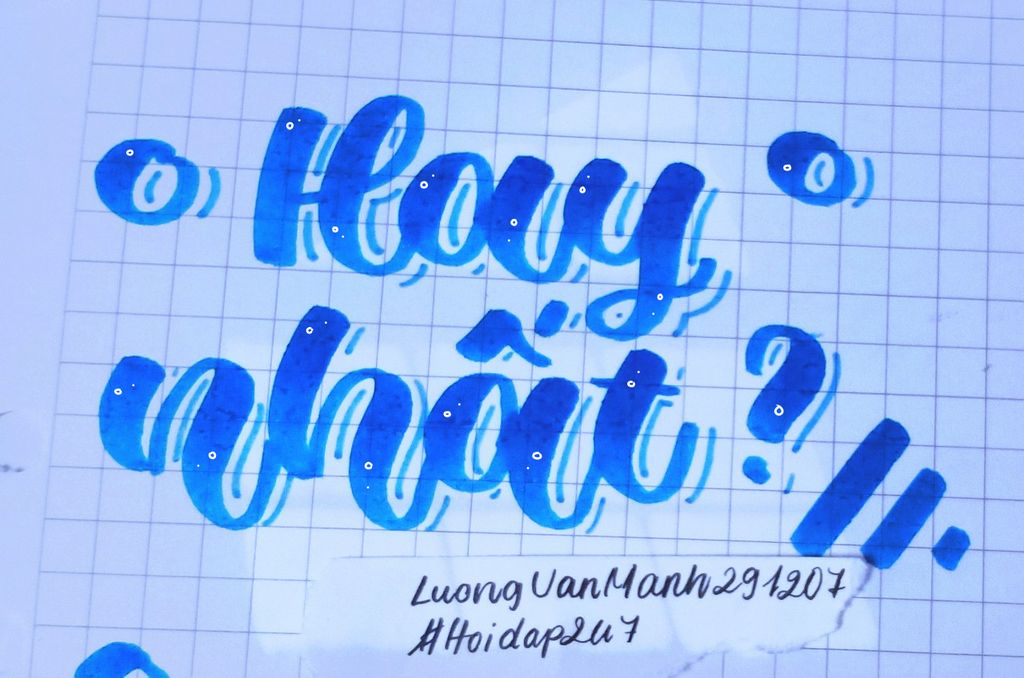 Hay
nhất?
LuongVanManh291207
#Hoidap247